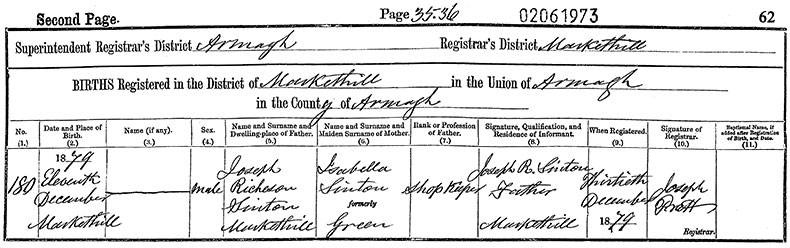 Second Page. Page 35-36 02061973 62
Superintendent Registrar's District Armagh Registrar's District Markethill
BIRTHS Registered in the District of Markethill in the Union of Armagh
in the County of Armagh
No. (1.) Date and Place of Birth. (2.) Name (if any). (3.) Sex. (4.) Name and Surname and Dwelling-place of Father. (5.) Name and Surname and Maiden Surname of Mother. (6.) Rank or Profession of Father. (7.) Signature, Qualification, and Residence of Informant. (8.) When Registered. (9.) Signature of Registrar. (10.) Baptismal Name, if added after Registration of Birth, and Date. (11.)
180
1879
Eleventh
December
Markethill
male
Joseph
Richeson
Sinton
Markethill
Isabella
Sinton
formerly
Green
Shop Keeper
Joseph R. Sinton
Father
Markethill
Thirtieth
December
1879
Joseph
Registrar.